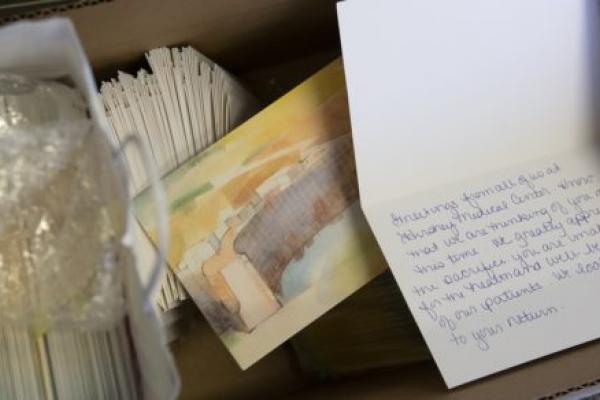 Greetings from all of us at
Hershey Medical Center. Know
that we are thinking of you
this time. We greatly
the sacrifice you are
for the health and well
of our patients. We look
to your return.